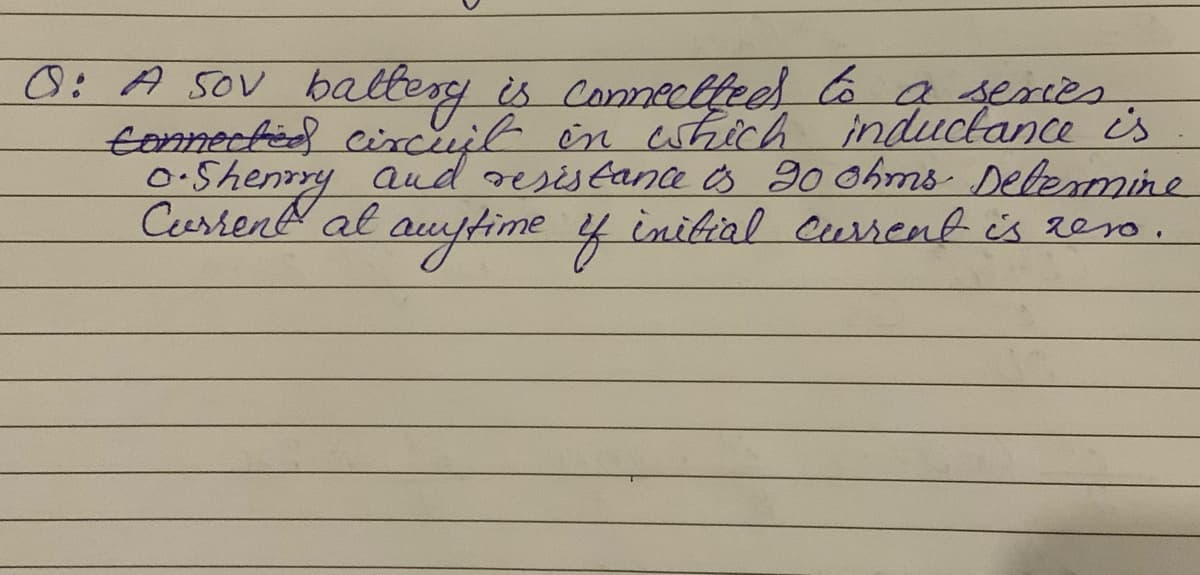 Q: A 50V battery is connectted to a series
connected circuit in which inductance is
0.5henrry and resistance is 90 ohms. Determine
Current at anytime if initial current is zero.